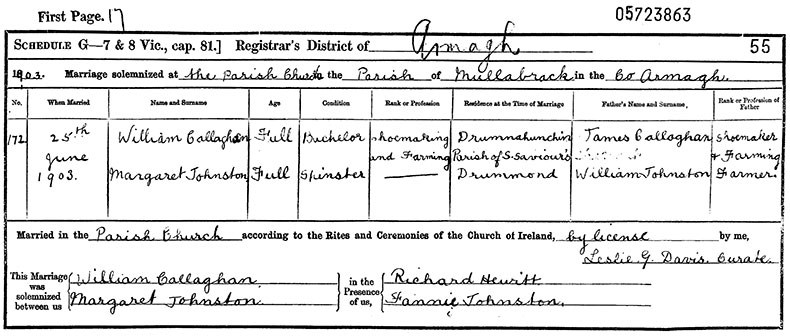 First Page. 17 05723863
SCHEDULE G—7 & 8 Vic., cap. 81.] Registrar's District of Armagh 55
1903. Marriage solemnized at the Parish Church in the Parish of Mullabrack in the Co Armagh.
No. When Married Name and Surname Age Condition Rank or Profession Residence at the Time of Marriage Father's Name and Surname, Rank or Profession of Father
172 25th William Callaghan Full Bachelor Shoemaking Drumnahunchin James Callaghan Shoemaker
June and Farming Parish of S. Saviour's & Farming
1903. Margaret Johnston Full Spinster Drummond William Johnston Farmer.
Married in the Parish Church according to the Rites and Ceremonies of the Church of Ireland, by license by me,
Leslie G. Davis. Curate.
This Marriage was solemnized between us William Callaghan. Margaret Johnston. in the Presence of us, Richard Hewitt Fannie Johnston.